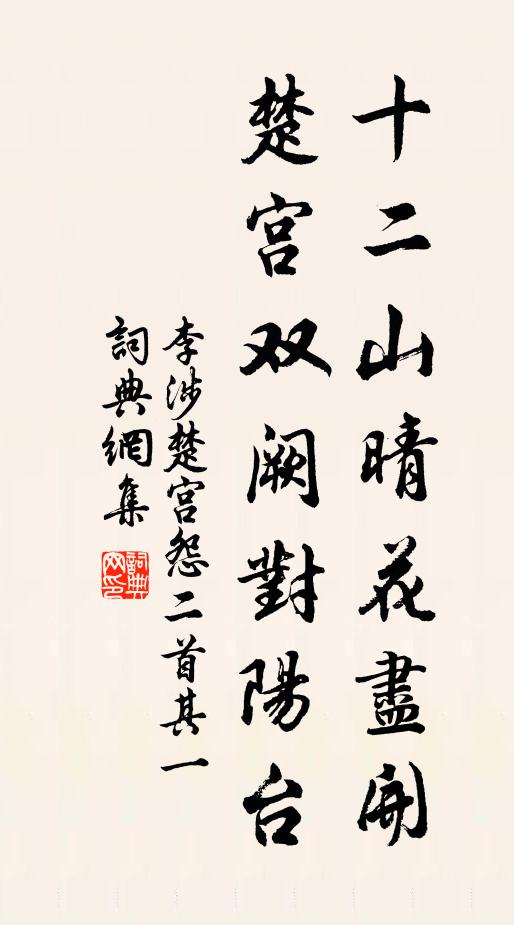 十二山晴花盡開
楚宫双阙對陽台
李涉楚宫怨二首其一
詞典網集
詞典网印